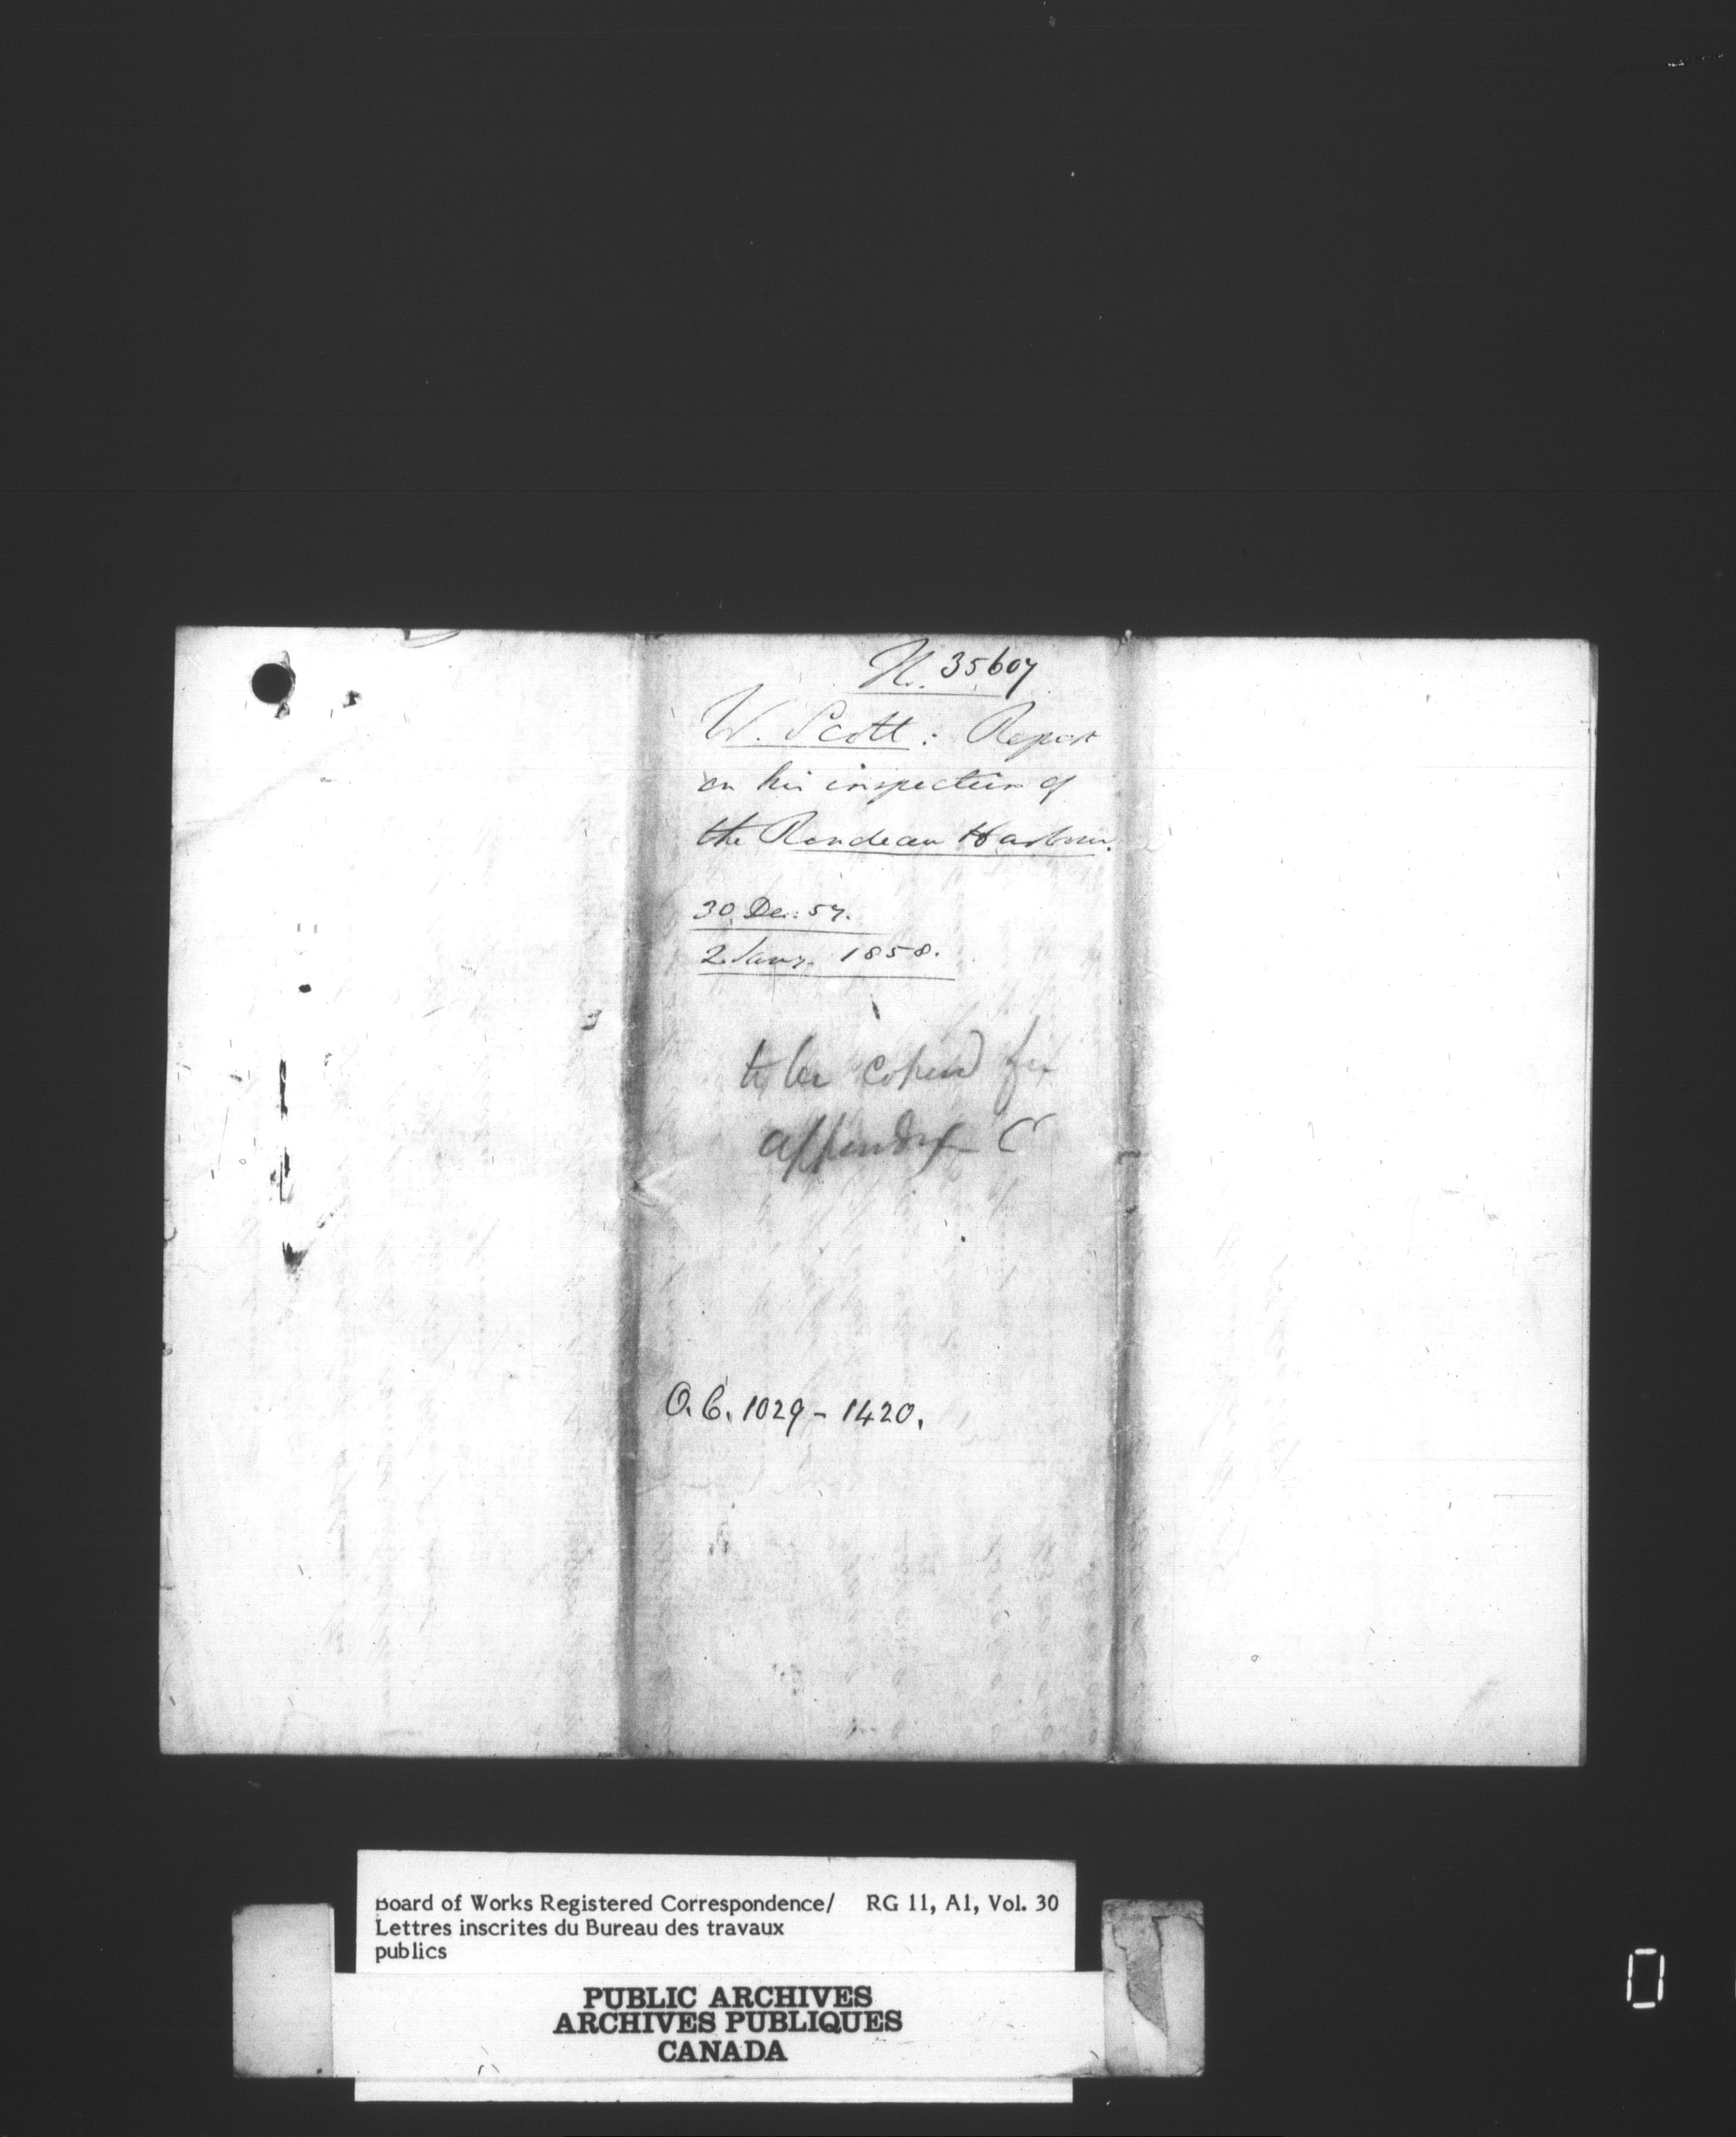 N. 35607
W. Scott: Report
on his inspection of
the Rondeau Harbour.
30 De: 57.
2 Jany. 1858.
to be copied for
appendix C
O.C. 1029 - 1420.
Board of Works Registered Correspondence/ RG 11, A1, Vol. 30
Lettres inscrites du Bureau des travaux
publics
PUBLIC ARCHIVES
ARCHIVES PUBLIQUES
CANADA
0